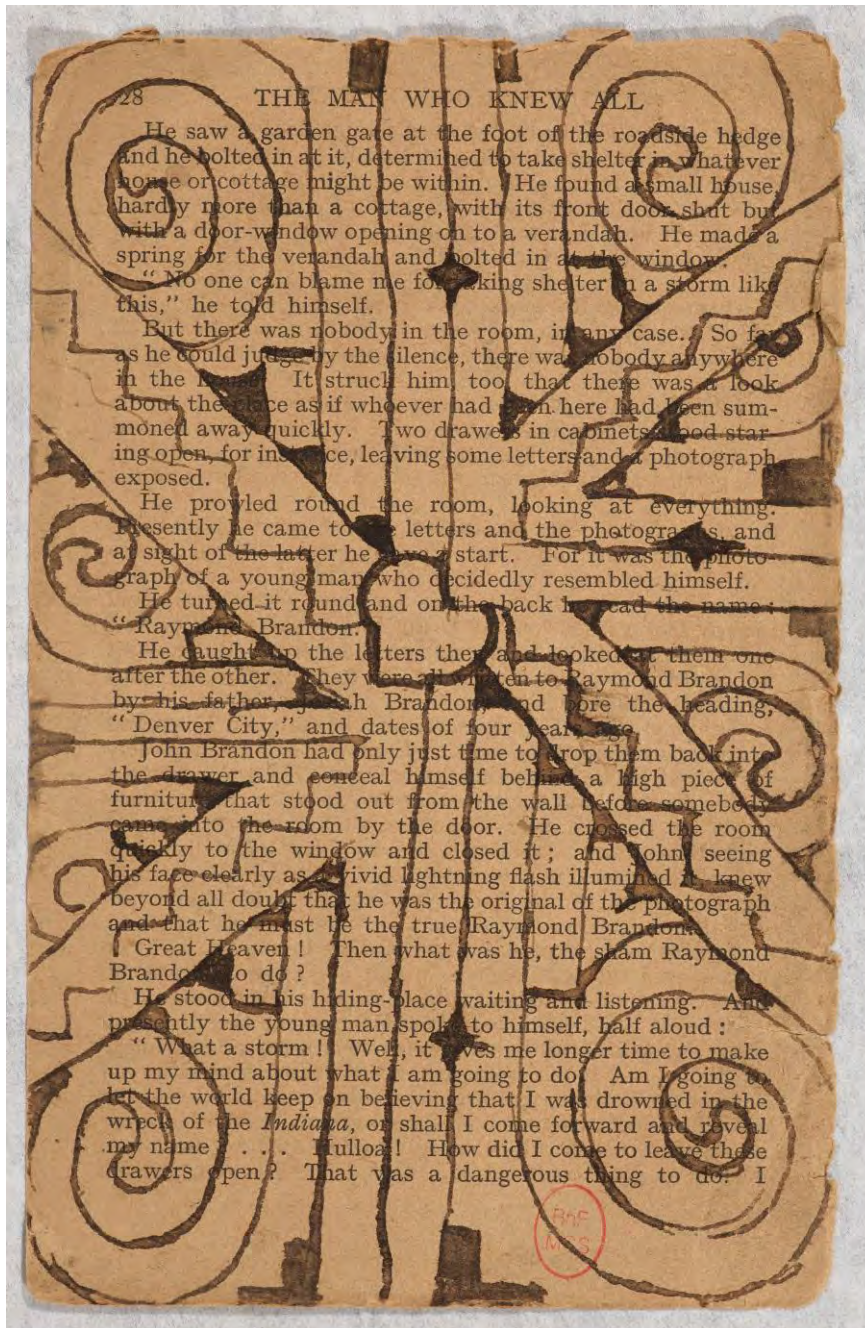 28 THE MAN WHO KNEW ALL
He saw a garden gate at the foot of the roadside hedge
and he bolted in at it, determined to take shelter in whatever
house or cottage might be within. He found a small house,
hardly more than a cottage, with its front door shut but
with a door-window opening on to a verandah. He made a
spring for the verandah and bolted in at the window.
“ No one can blame me for taking shelter in a storm like
this,” he told himself.
But there was nobody in the room, in any case. So far
as he could judge by the silence, there was nobody anywhere
in the house. It struck him, too, that there was a look
about the place as if whoever had been here had been sum-
moned away quickly. Two drawers in cabinets stood star-
ing open, for instance, leaving some letters and a photograph
exposed.
He prowled round the room, looking at everything.
Presently he came to the letters and the photographs, and
at sight of the latter he gave a start. For it was the photo-
graph of a young man who decidedly resembled himself.
He turned it round and on the back he read the name :
“ Raymond Brandon.”
He caught up the letters then and looked at them one
after the other. They were all written to Raymond Brandon
by his father, Josiah Brandon, and bore the heading,
“ Denver City,” and dates of four years ago.
John Brandon had only just time to drop them back into
the drawer and conceal himself behind a high piece of
furniture that stood out from the wall before somebody
came into the room by the door. He crossed the room
quickly to the window and closed it ; and John, seeing
his face clearly as a vivid lightning flash illumined it, knew
beyond all doubt that he was the original of the photograph
and that he must be the true Raymond Brandon.
Great Heaven ! Then what was he, the sham Raymond
Brandon, to do ?
He stood in his hiding-place waiting and listening. And
presently the young man spoke to himself, half aloud :
“ What a storm ! Well, it gives me longer time to make
up my mind about what I am going to do. Am I going to
let the world keep on believing that I was drowned in the
wreck of the Indiana, or shall I come forward and reveal
my name ? . . . Hulloa ! How did I come to leave these
drawers open ? That was a dangerous thing to do. I
BnF
MSS